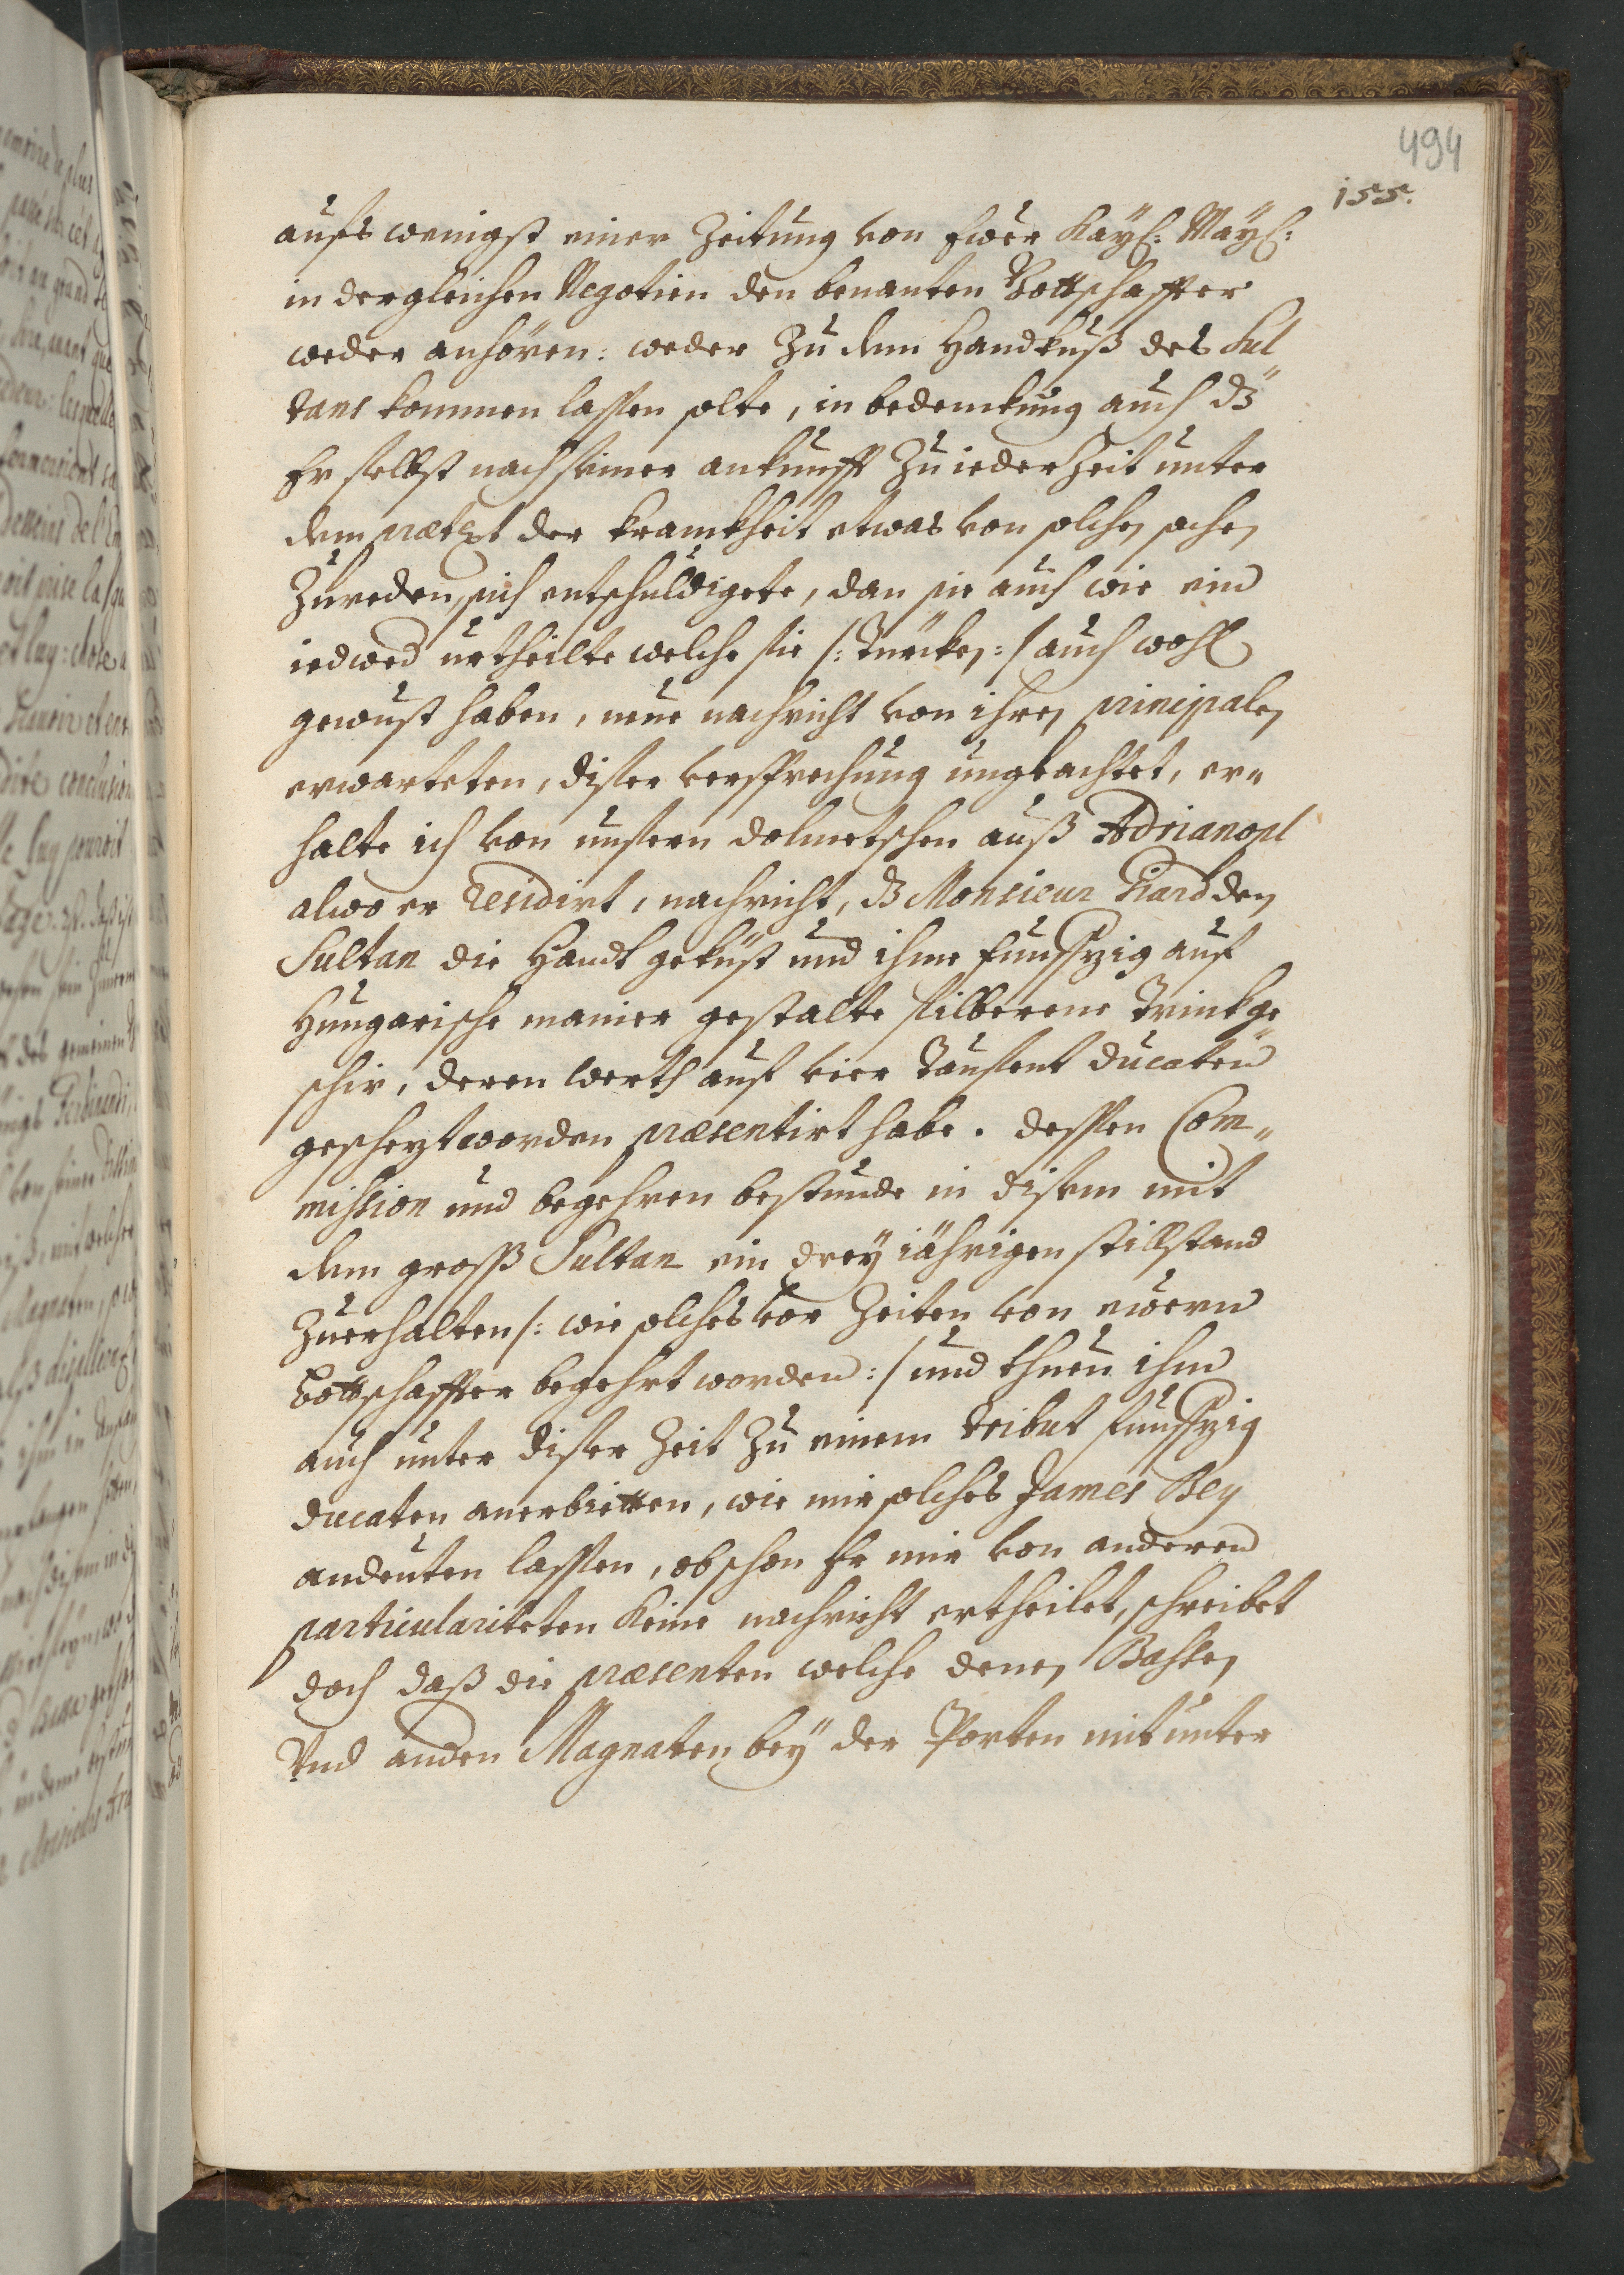 494
155.
aufs wenigst einer Zeitung von Ewer Kayß: Mayß:
in dergleichen Negotien den benanten Bottschaffter
weder anhören: weder Zu dem Handkuß des Sul
tans kommen lassen solte, in bedenckung auch dz
Er selbst nach seiner ankunfft Zu ieder Zeit unter
dem prætext der kranckheit etwas von solchen sachen
Zu reden, sich entschuldigete, dan sie auch wie ein
iedwed urtheilte welche sie /: Türcken :/ auch wohl
gewust haben, neue nachricht von ihren principalen
erwarteten, diser versprechung ungeachtet, er„
halte ich von unsern dolmetschen auß Adrianopl
alwo er residirt, nachricht, dz Monsieur Hiard den
Sultan die Handt geküst und ihme funffzig auf
Hungarische manier gestalte silberene Trinkge
schir, deren werth auf vier Tausent ducaten
geschezt worden præsentirt habe. dessen Com„
mission und begehren bestunde in disem mit
dem groß Sultan ein drey iährigen stillstand
Zu erhalten /: wie solches vor Zeiten von ewern
Bottschaffter begehrt worden :/ und thuen ihm
auch unter diser Zeit Zu einem tribut funffzig
ducaten anerbietten, wie mir solches James Bey
andeuten lassen, obschon Er mir von anderen
particulariteten keine nachricht ertheilet, schreibet
doch daß die præsenten welche denen Bassen
Vnd anden Magnaten bey der Porten mit unter